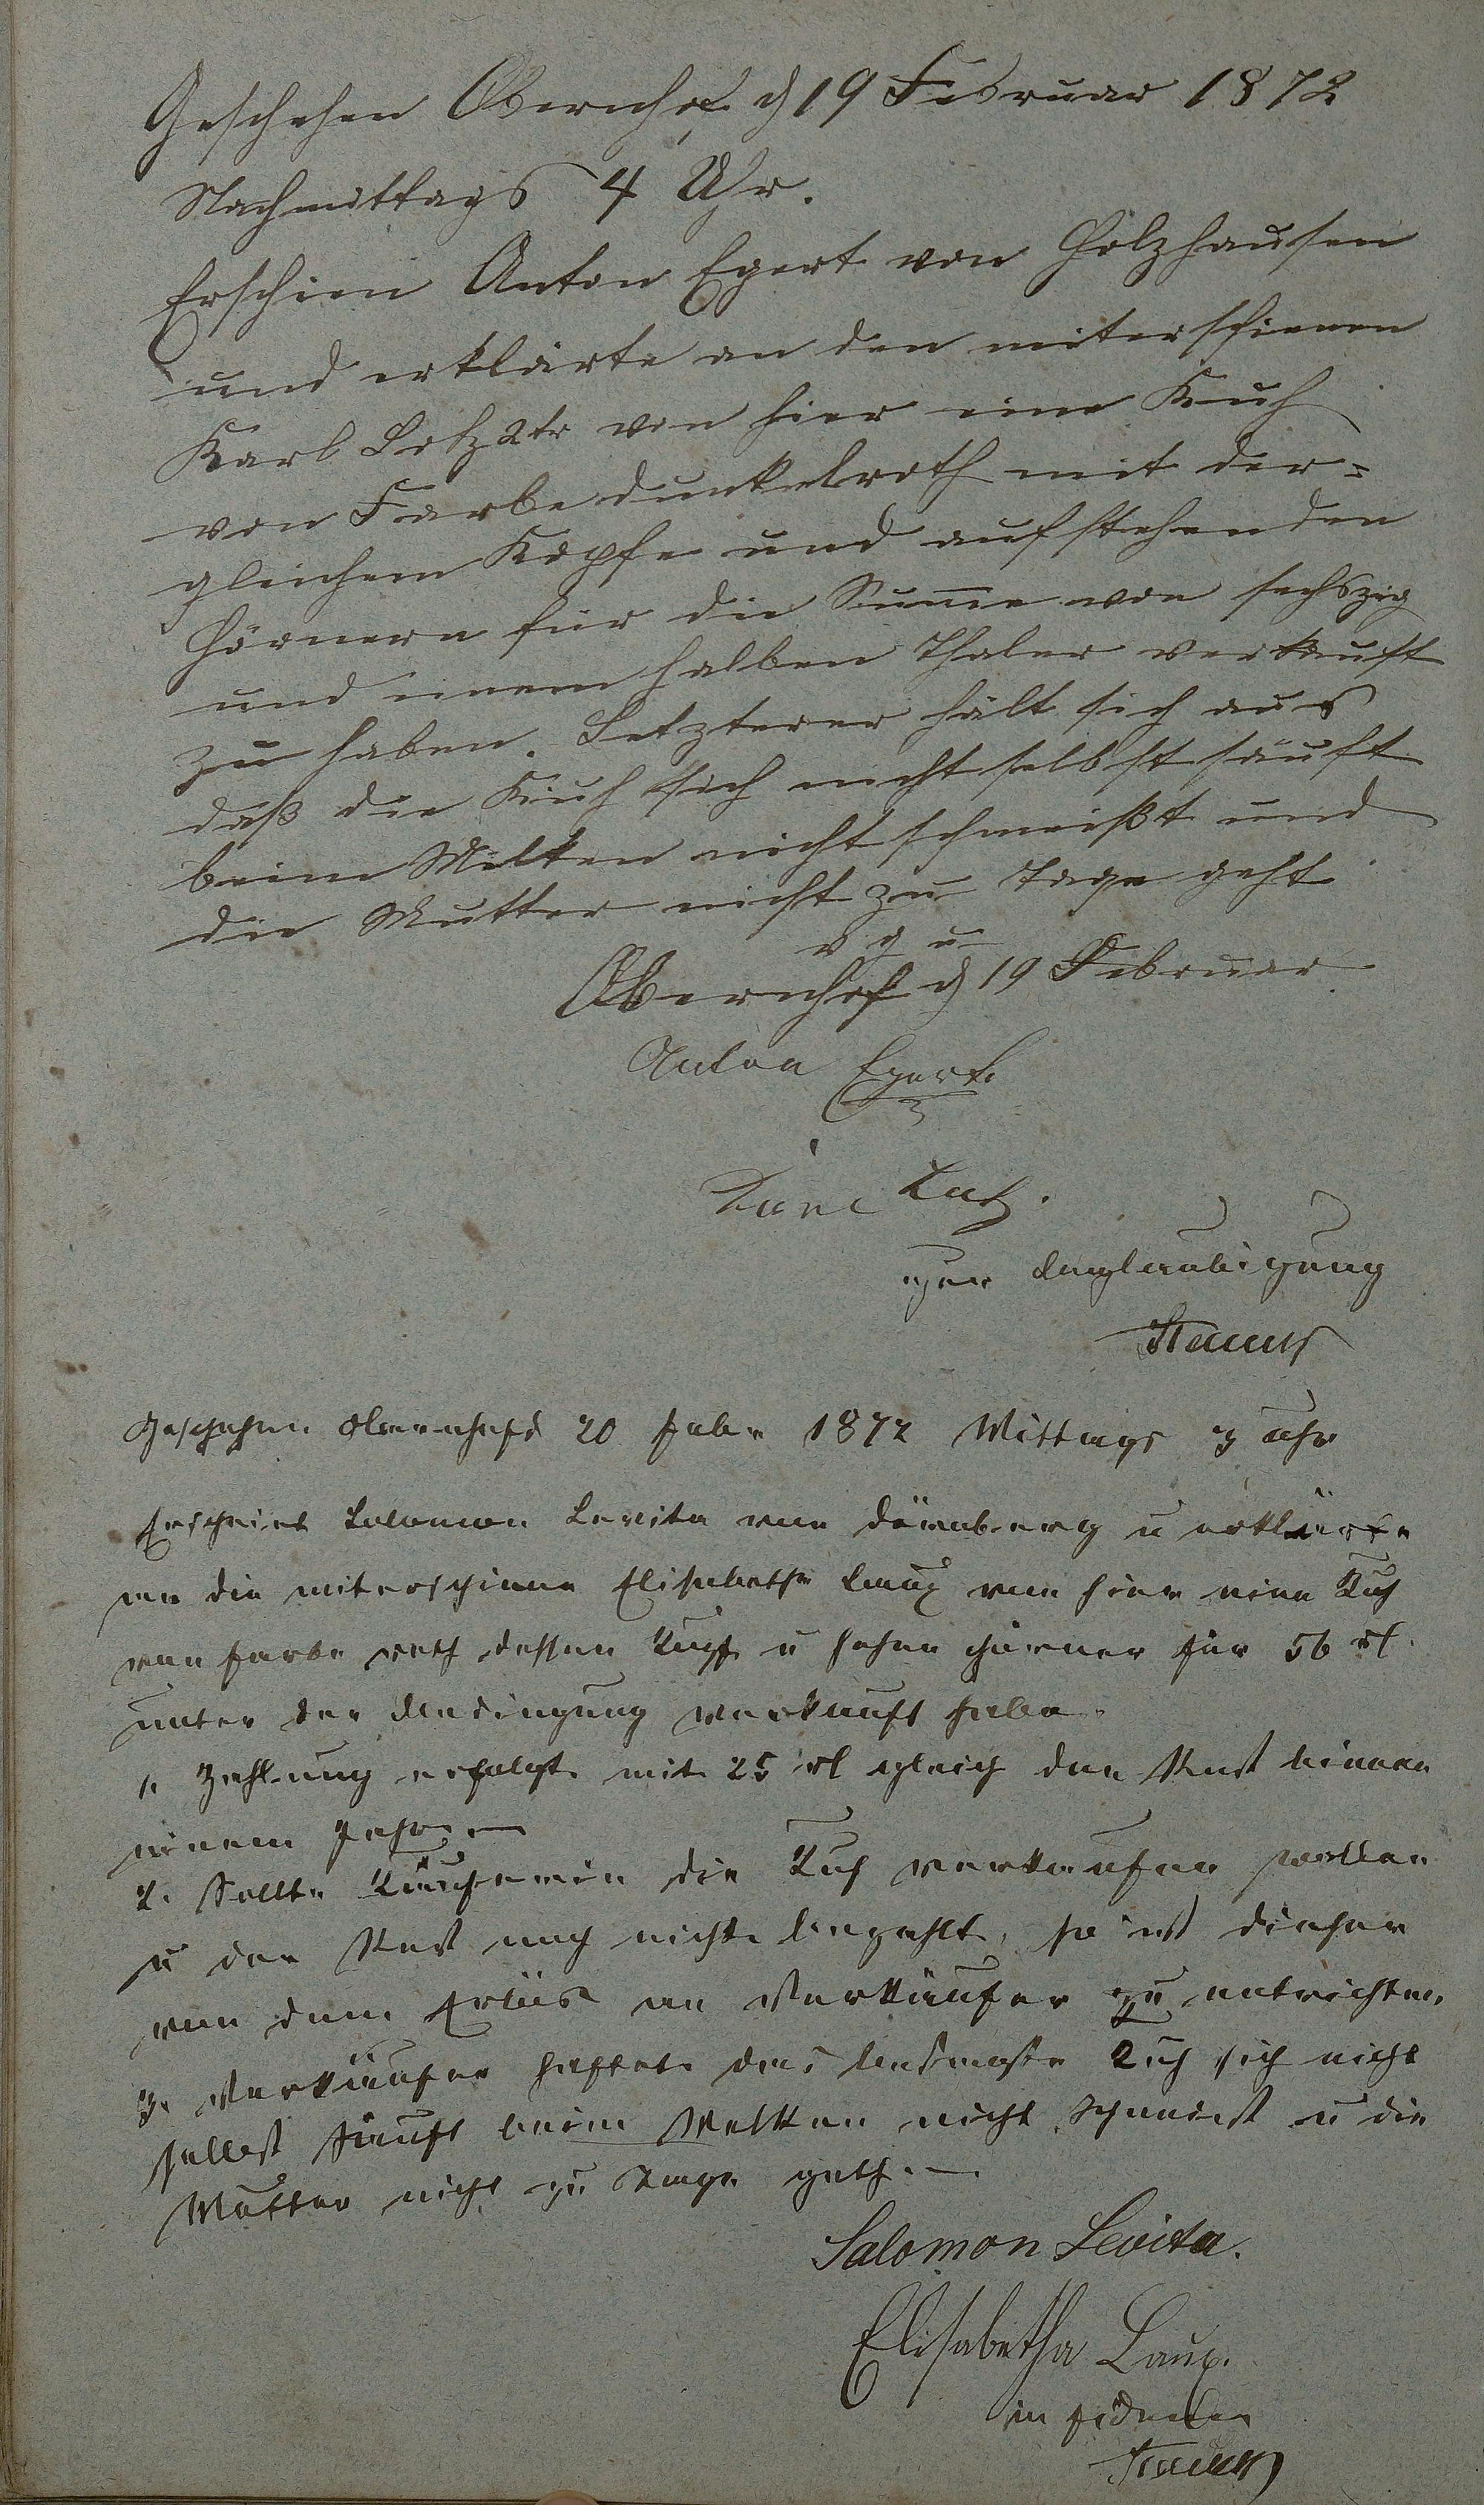 Geschehen Obernhof d 19 Februar 1872
Nachmittags 4 Uhr.
Erschien Anton Egert von Holzhausen
und erklärte an den miterschienen
Karl Lotz 2tr von hier eine Kuh
von Farbe dunkelroth mit der=
gleichem Kopfe und aufstehenden
Hörnern für die Sum̄e von sechszig
und einem halben Thaler verkauft
zu haben. Letzterer hält sich aus
daß die Kuh sich nicht selbst säuft
beim Melken nicht schmeißt und
die Mutter nicht zu Tage geht
v g u
Obernhof d 19 Februar
Anton Egert.
Karl Lotz.
zur Beglaubigung
Geschehen Obernhof d 20 Febr 1872 Mittags 3 Uhr
Erscheint Salomon Levita von Dörnberg u erklärte
an die miterschiene Elisabethe Laux von hier eine Kuh
von Farbe roth dessen Kopf u hohen Hörner für 56 rl.
unter der Bedingung verkauft habe.
1. Zahlung erfolgt mit 25 rl gleich den Rest binnen
einem Jahre
2. Sollte Käuferin die Kuh verkaufen wollen
u den Rest noch nicht bezahlt, so ist dieser
von dem Erlös an Verkäufer zu entrichten.
3. Verkäufer haftet das Kuh sich nicht
selbst säuft beim Melken nicht schmeist u die
Mutter nicht zu Tage geth.—
Salomon Levita.
Elisabetha Laux.
in fidem